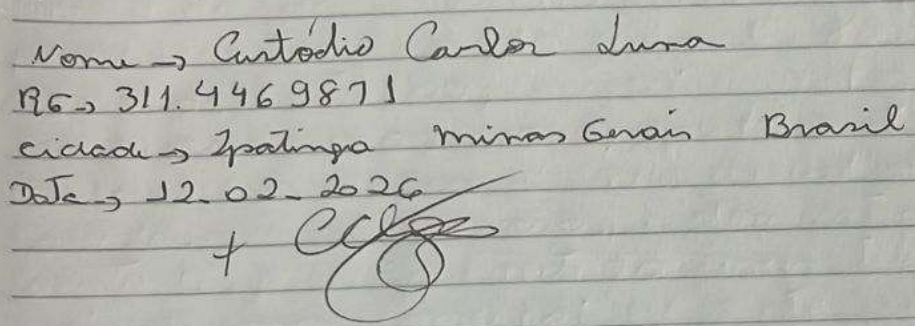 Nome → Custódio Carlos Luna
RG → 311.4469871
cidade → Ipatinga Minas Gerais Brasil
Data → 12-02-2026
+